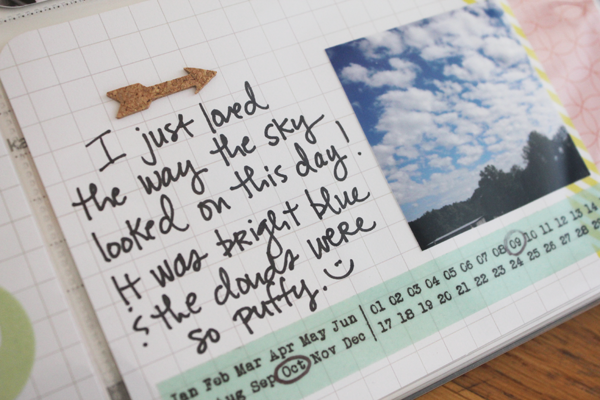 I just loved
the way the sky
looked on this day!
It was bright blue
& the clouds were
so puffy.
Jan Feb Mar Apr May Jun
Aug Sep Oct Nov Dec
01 02 03 04 05 06 07 08 09 10 11 12 13 14
17 18 19 20 21 22 23 24 25 26 27 28